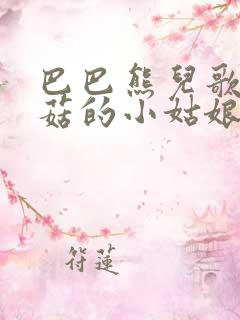 巴巴熊兒歌
菇的小姑娘
符蓮